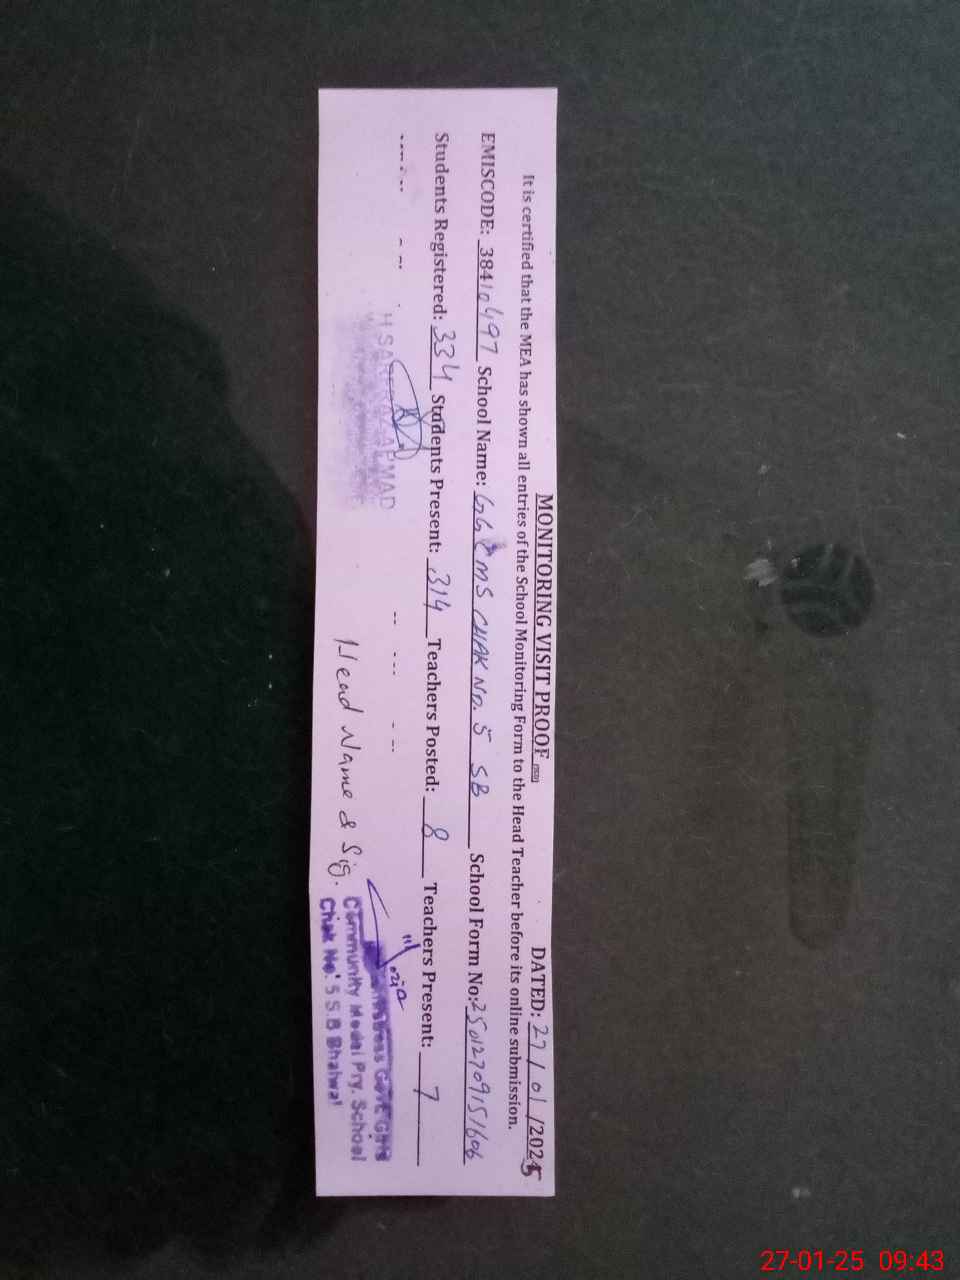 MONITORING VISIT PROOF
DATED: 27/01/2025
It is certified that the MEA has shown all entries of the School Monitoring Form to the Head Teacher before its online submission.
EMISCODE: 38410497 School Name: GGCMS CHAK No. 5 SB School Form No: 25012709151606
Students Registered: 334 Students Present: 314 Teachers Posted: 8 Teachers Present: 7
AHMAD
Head Name & Sig.
Govt Girls
Community Model Pry. School
Chak No. 5 S.B Bhalwal
27-01-25 09:43